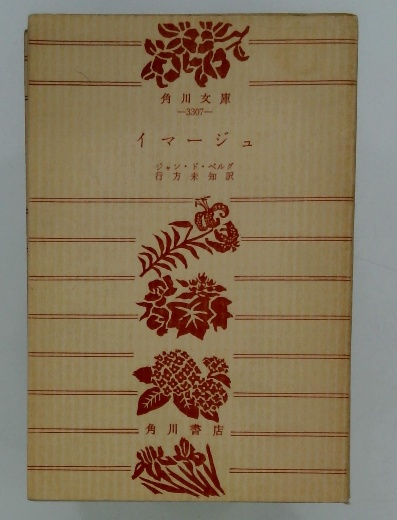 角川文庫
—3307—
イマージュ
ジャン・ド・ベルグ
行方未知訳
角川書店